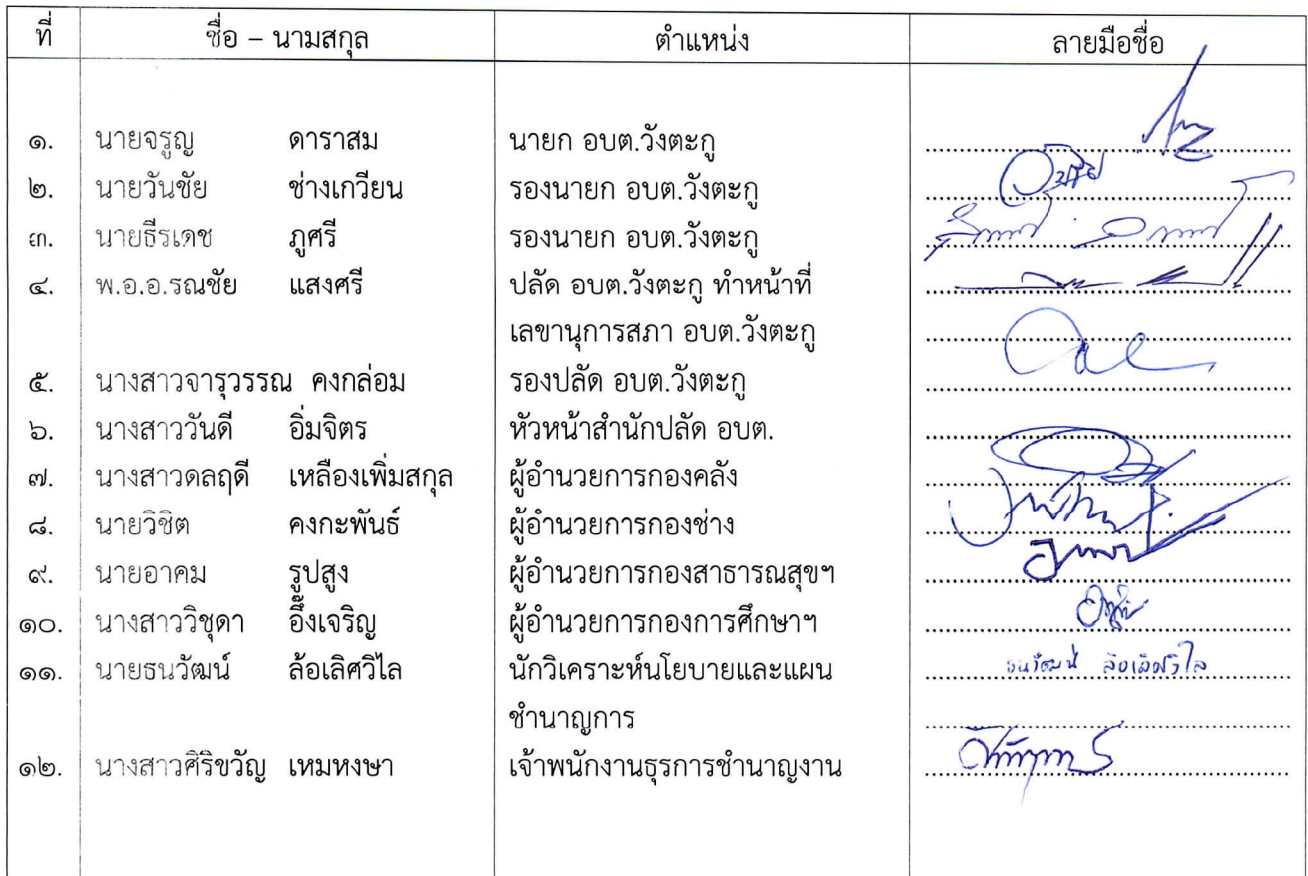 ที่ ชื่อ – นามสกุล ตำแหน่ง ลายมือชื่อ
๑. นายจรูญ ดาราสม นายก อบต.วังตะกู
๒. นายวันชัย ช่างเกวียน รองนายก อบต.วังตะกู
๓. นายธีรเดช ภูศรี รองนายก อบต.วังตะกู
๔. พ.อ.อ.รณชัย แสงศรี ปลัด อบต.วังตะกู ทำหน้าที่
เลขานุการสภา อบต.วังตะกู
๕. นางสาวจารุวรรณ คงกล่อม รองปลัด อบต.วังตะกู
๖. นางสาววันดี อิ่มจิตร หัวหน้าสำนักปลัด อบต.
๗. นางสาวดลฤดี เหลืองเพิ่มสกุล ผู้อำนวยการกองคลัง
๘. นายวิชิต คงกะพันธ์ ผู้อำนวยการกองช่าง
๙. นายอาคม รูปสูง ผู้อำนวยการกองสาธารณสุขฯ
๑๐. นางสาววิชุดา อึ๊งเจริญ ผู้อำนวยการกองการศึกษาฯ
๑๑. นายธนวัฒน์ ล้อเลิศวิไล นักวิเคราะห์นโยบายและแผน ธนวัฒน์ ล้อเลิศวิไล
ชำนาญการ
๑๒. นางสาวศิริขวัญ เหมหงษา เจ้าพนักงานธุรการชำนาญงาน